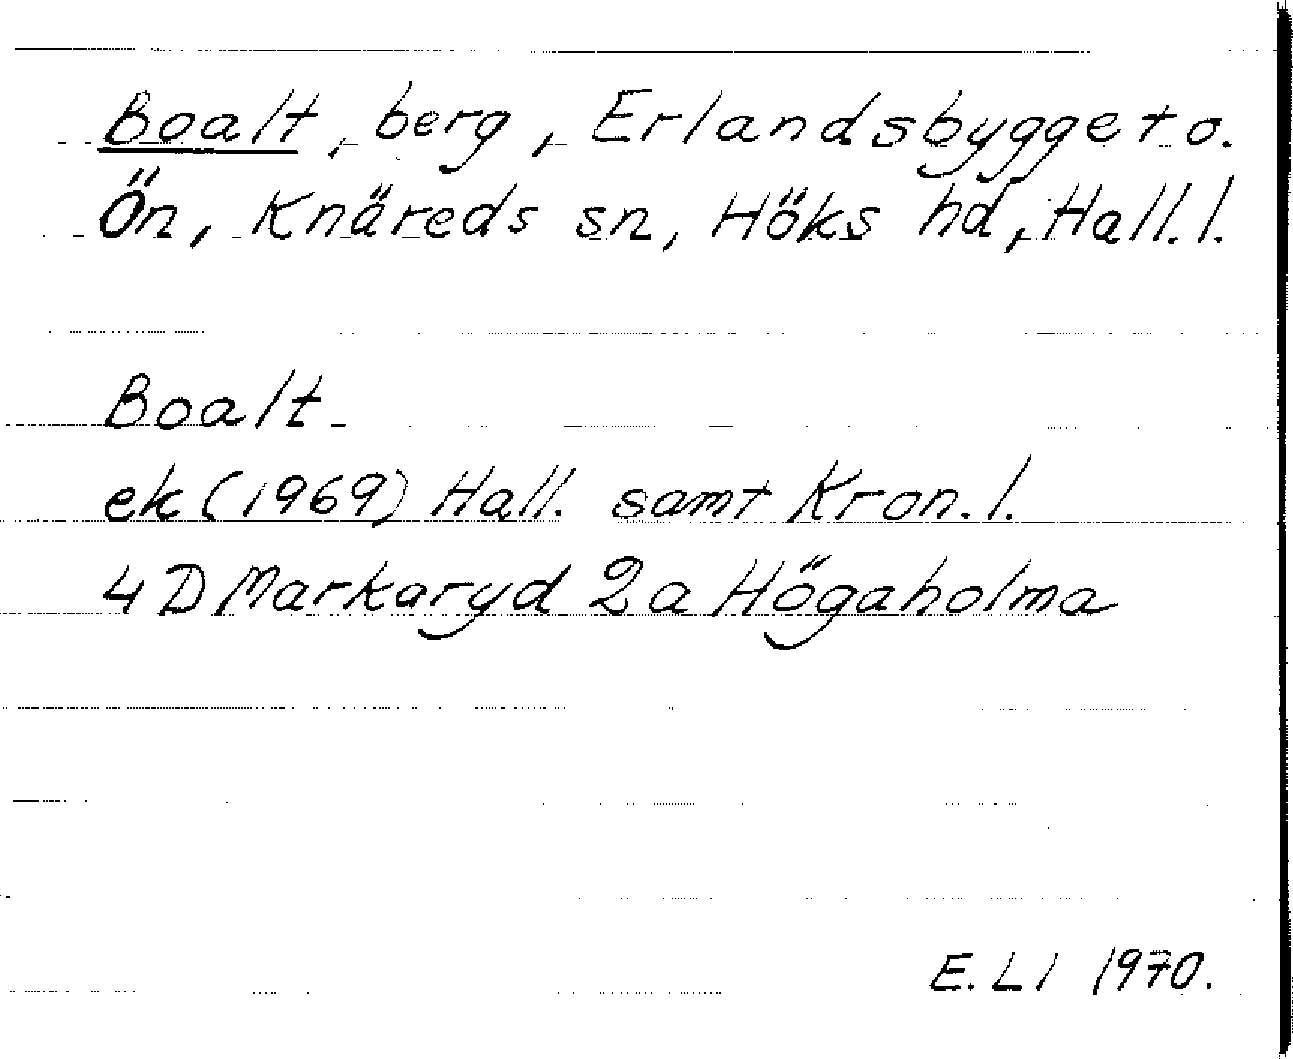 Boalt, berg, Erlandsbygget o.
Ön, Knäreds sn, Höks hd, Hall. l.
Boalt
ek (1969) Hall. samt Kron. l.
4 D Markaryd 2a Högaholma
E. LI 1970.